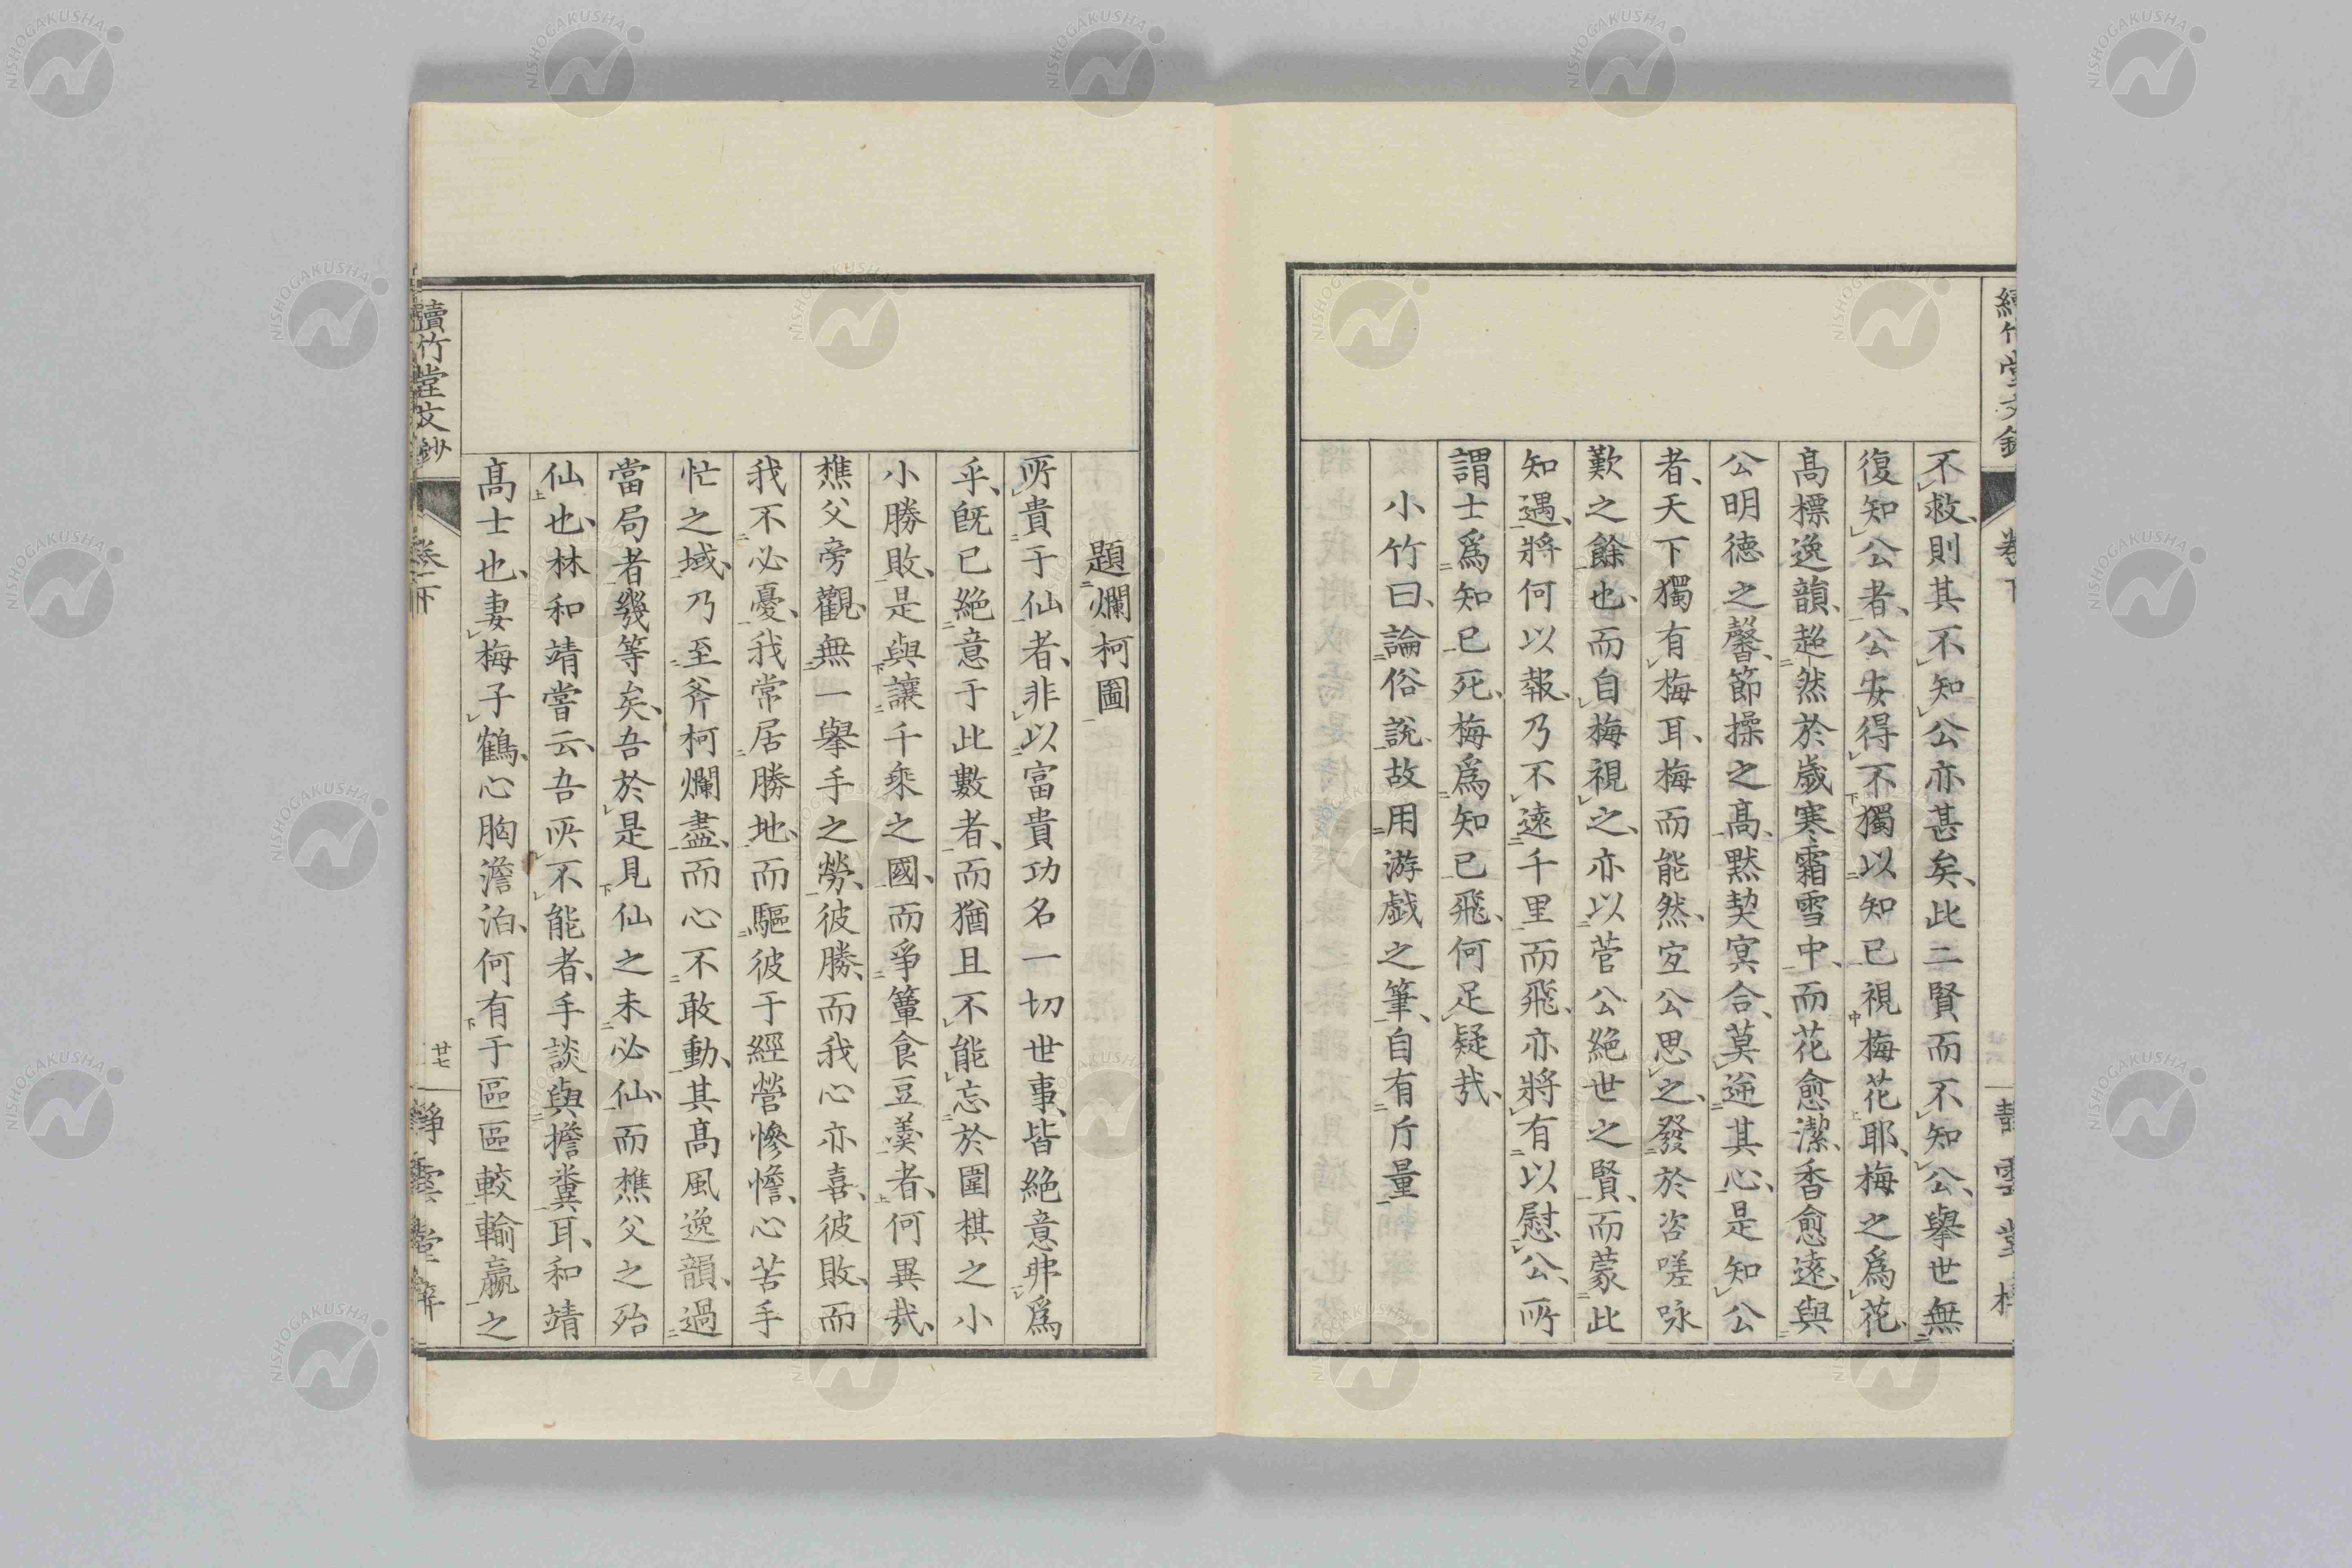 不救、則其不知公亦甚矣、此二賢而不知公、擧世無
復知公者、公安得不獨以知已視梅花耶、梅之爲花、
高標逸韻、超然於歲寒霜雪中、而花愈潔、香愈遠、與
公明德之馨、節操之高、默契冥合、莫逆其心、是知公
者、天下獨有梅耳、梅而能然、宜公思之、發於咨嗟咏
歎之餘也、而自梅視之、亦以菅公絕世之賢、而蒙此
知遇、將何以報、乃不遠千里而飛、亦將有以慰公、所
謂士爲知已死、梅爲知已飛、何足疑哉、
小竹曰、論俗說故用游戯之筆、自有斤量
題爛柯圖
所貴于仙者、非以富貴功名一切世事、皆絕意弗爲
乎、旣已絕意于此數者、而猶且不能忘於圍棋之小
小勝敗、是與讓千乘之國、而爭簞食豆羹者、何異哉、
樵父旁觀、無一擧手之勞、彼勝而我心亦喜、彼敗、而
我不必憂、我常居勝地、而驅彼于經營慘憺、心苦手
忙之域、乃至斧柯爛盡、而心不敢動、其高風逸韻、過
當局者幾等矣、吾於是見仙之未必仙、而樵父之殆
仙也、林和靖嘗云、吾所不能者、手談與擔糞耳、和靖
高士也、妻梅子鶴、心胸澹泊、何有于區區較輸贏之
續竹堂文鈔
卷下
廿七
靜雲堂梓